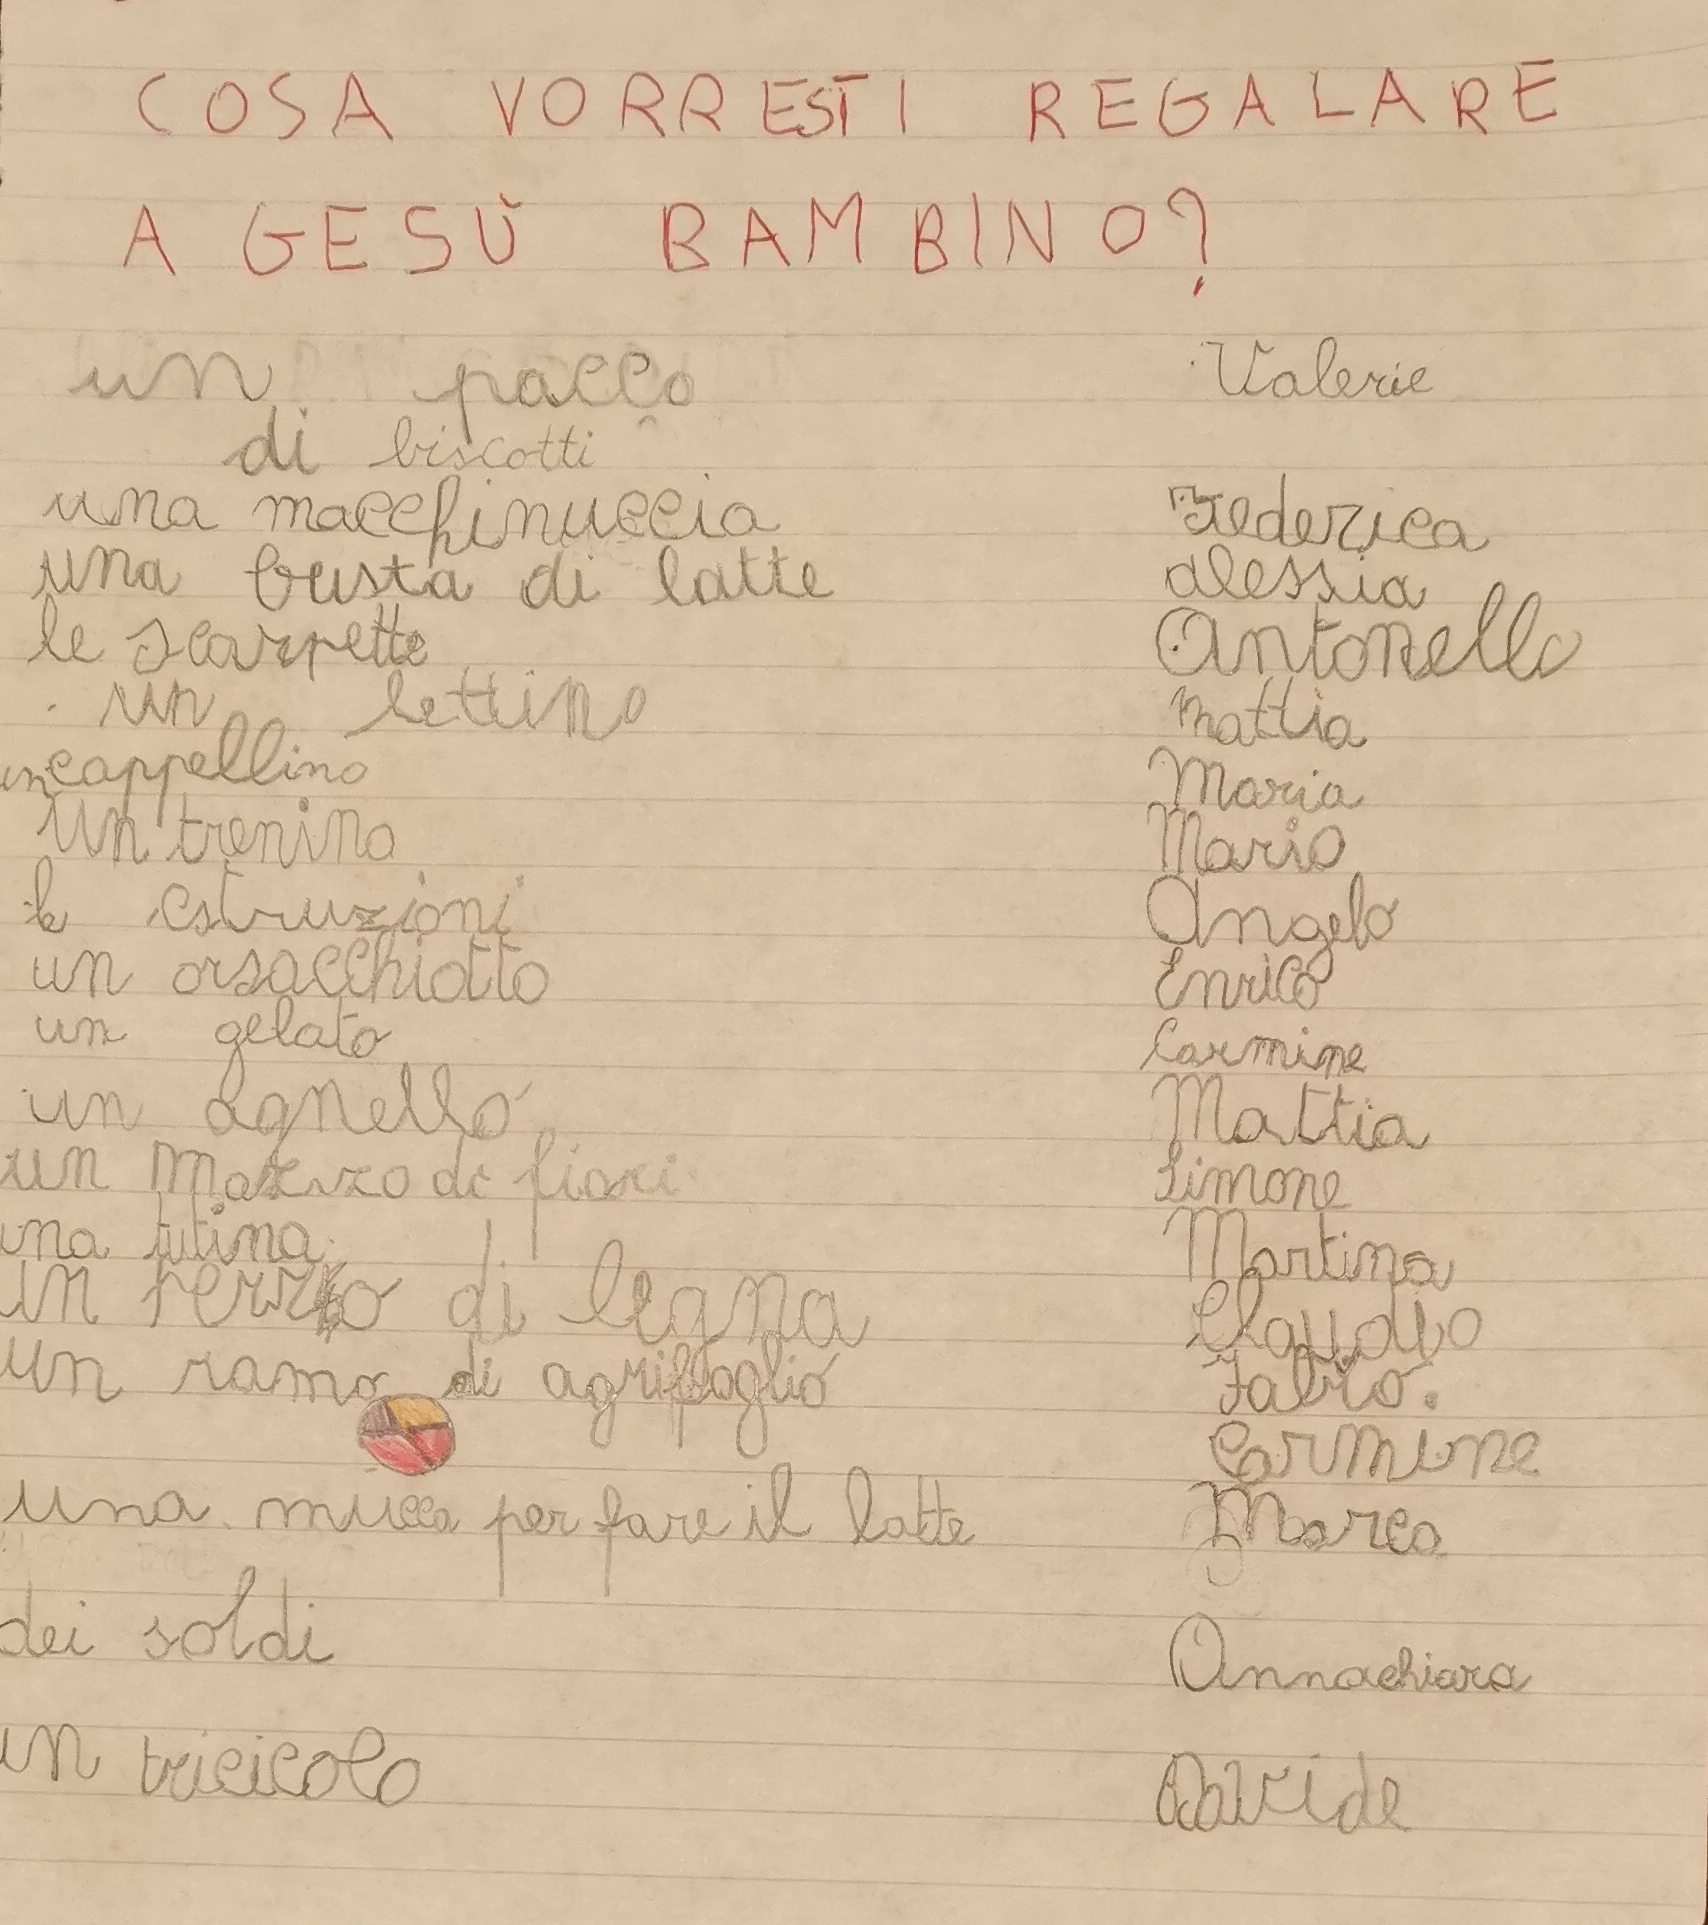 COSA VORRESTI REGALARE
A GESÙ BAMBINO?
un pacco Valerie
di biscotti
una macchinuccia Federica
una busta di latte alessia
le scarpette Antonella
un lettino mattia
un cappellino Maria
un trenino Mario
le costruzioni Angelo
un orsacchiotto Enrico
un gelato Carmine
un agnello Mattia
un mazzo di fiori Simone
una tutina Martina
un pezzo di legna Claudio
un ramo di agrifoglio Fabio.
Carmine
una mucca per fare il latte Marco
dei soldi Annachiara
un triciclo Davide